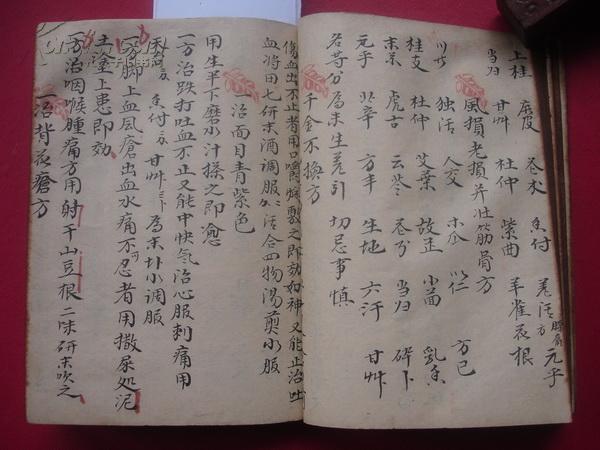 上桂 麻皮 苍术 香付 羌活 元乎
当归 甘艸 杜仲 紫曲 羊雀衣根
風損老損并壮筋骨方
独活 人交 木瓜 方已
桂支 杜仲 艾葉 故正 小茴 乳香
末药 虎古 云苓 当归 碎卜
元乎 北辛 方丰 生地 六汗 甘艸
各等分為末生姜引 切忌事慎
千金不換方
傷血出不止者用口嚼爛敷之即効如神又能止治吐
血將田七研末酒調服 活合四物湯煎水服
治面目青紫色
用生半下磨水汁搽之即愈
一方治跌打吐血不止又能中快气治心服刺痛用
末药 香付 甘艸 為末扑小調服
一方脚上血風瘡出血水痛不可忍者用撒尿処泥
土塗上患即効
一方治咽喉腫痛方用射干山豆根二味研末吹之
一治背衣瘡方